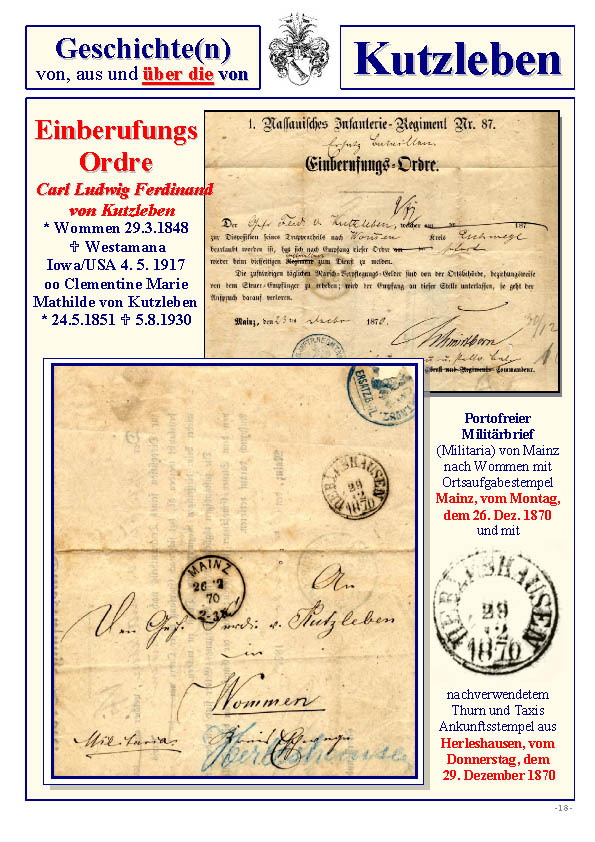 Geschichte(n)
von, aus und über die von
Kutzleben
Einberufungs
Ordre
Carl Ludwig Ferdinand
von Kutzleben
* Wommen 29.3.1848
✞ Westamana
Iowa/USA 4. 5. 1917
oo Clementine Marie
Mathilde von Kutzleben
* 24.5.1851 ✞ 5.8.1930
1. Nassauisches Infanterie-Regiment Nr. 87.
Ersatz Bataillon.
Einberufungs-Ordre.
Der Gefr. Ferd. v. Kutzleben, welcher am 187
zur Disposition seines Truppentheils nach Wommen Kreis Eschwege
beurlaubt worden ist, hat sich nach Empfang dieser Ordre am sofort
wieder beim diesseitigen Regiment zum Dienst zu melden.
Die zuständigen täglichen Marsch-Verpflegungs-Gelder sind von der Ortsbehörde, beziehungsweise
von dem Steuer-Empfänger zu erheben; wird der Empfang an dieser Stelle unterlassen, so geht der
Anspruch darauf verloren.
Mainz, den 23ten Decbr 1870.
30/12
und Regiments-Commandeur.
ERSATZB
HERLESHAUSEN
29
12
1870
MAINZ
26 12
70
2-3N
An
Den Gefr. Ferdin. v. Kutzleben
in
Wommen
Militaria. Kreis Eschwege
Herleshausen
Portofreier
Militärbrief
(Militaria) von Mainz
nach Wommen mit
Ortsaufgabestempel
Mainz, vom Montag,
dem 26. Dez. 1870
und mit
HERLESHAUSEN
29
12
1870
nachverwendetem
Thurn und Taxis
Ankunftsstempel aus
Herleshausen, vom
Donnerstag, dem
29. Dezember 1870
-18-